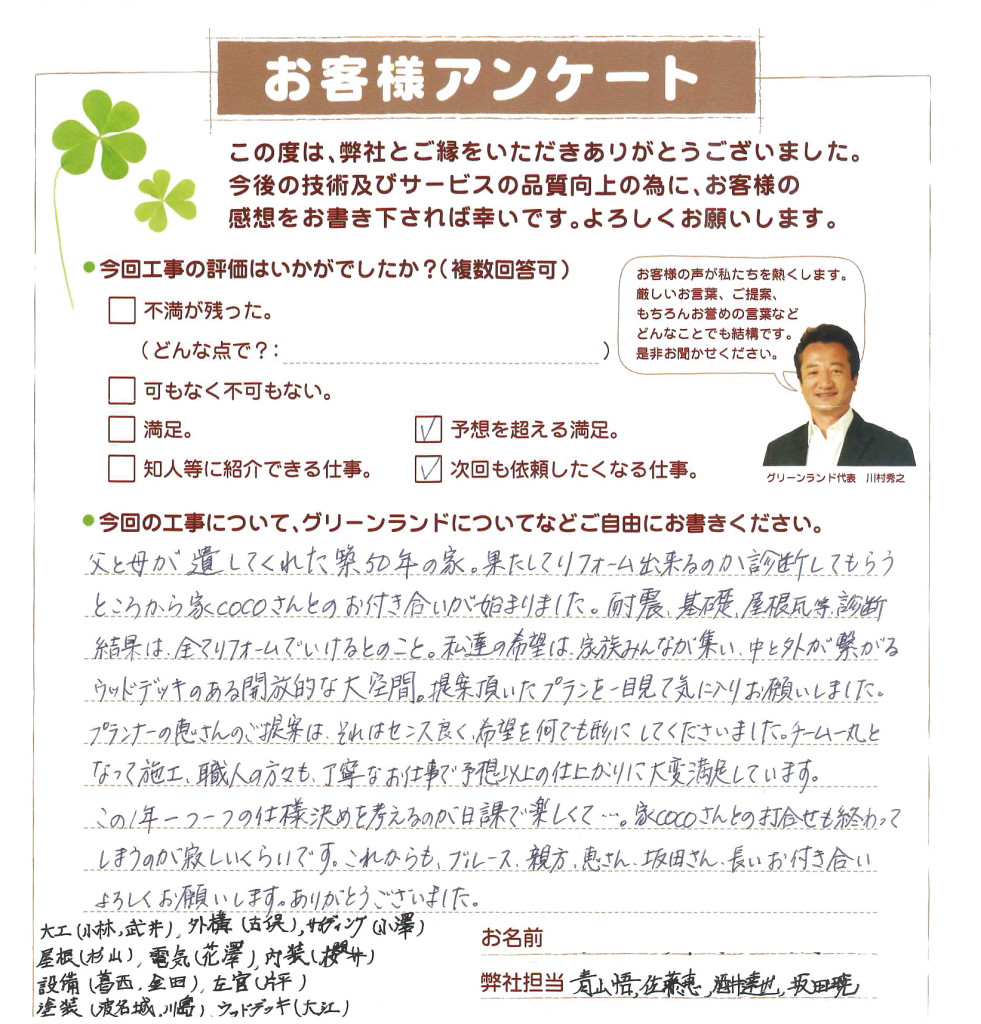 お客様アンケート
この度は、弊社とご縁をいただきありがとうございました。
今後の技術及びサービスの品質向上の為に、お客様の
感想をお書き下されば幸いです。よろしくお願いします。
今回工事の評価はいかがでしたか？（複数回答可）
不満が残った。
（どんな点で？：　）
可もなく不可もない。
満足。
予想を超える満足。
知人等に紹介できる仕事。
次回も依頼したくなる仕事。
お客様の声が私たちを熱くします。
厳しいお言葉、ご提案、
もちろんお誉めの言葉など
どんなことでも結構です。
是非お聞かせください。
グリーンランド代表　川村秀之
今回の工事について、グリーンランドについてなどご自由にお書きください。
父と母が遺してくれた築50年の家。果たしてリフォーム出来るのか診断してもらう
ところから家COCOさんとのお付き合いが始まりました。耐震、基礎、屋根瓦等、診断
結果は、全てリフォームでいけるとのこと。私達の希望は、家族みんなが集い、中と外が繋がる
ウッドデッキのある開放的な大空間。提案頂いたプランを一目見て気に入りお願いしました。
プランナーの恵さんのご提案は、それはセンス良く、希望を何でも形にしてくださいました。チーム一丸と
なって施工、職人の方々も、丁寧なお仕事で予想以上の仕上がりに大変満足しています。
この1年一つ一つの仕様決めを考えるのが日課で楽しくて…。家COCOさんとの打合せも終わって
しまうのが寂しいくらいです。これからも、ブルース、親方、恵さん、坂田さん、長いお付き合い
よろしくお願いします。ありがとうございました。
大工(小林,武井),外構(古俣),サイディング(小澤)
屋根(杉山),電気(花澤),内装(桜井)
設備(葛西,金田),左官(片平)
塗装(波名城,川島),ウッドデッキ(大江)
お名前
弊社担当 青山悟,佐藤恵,酒井達也,坂田暁